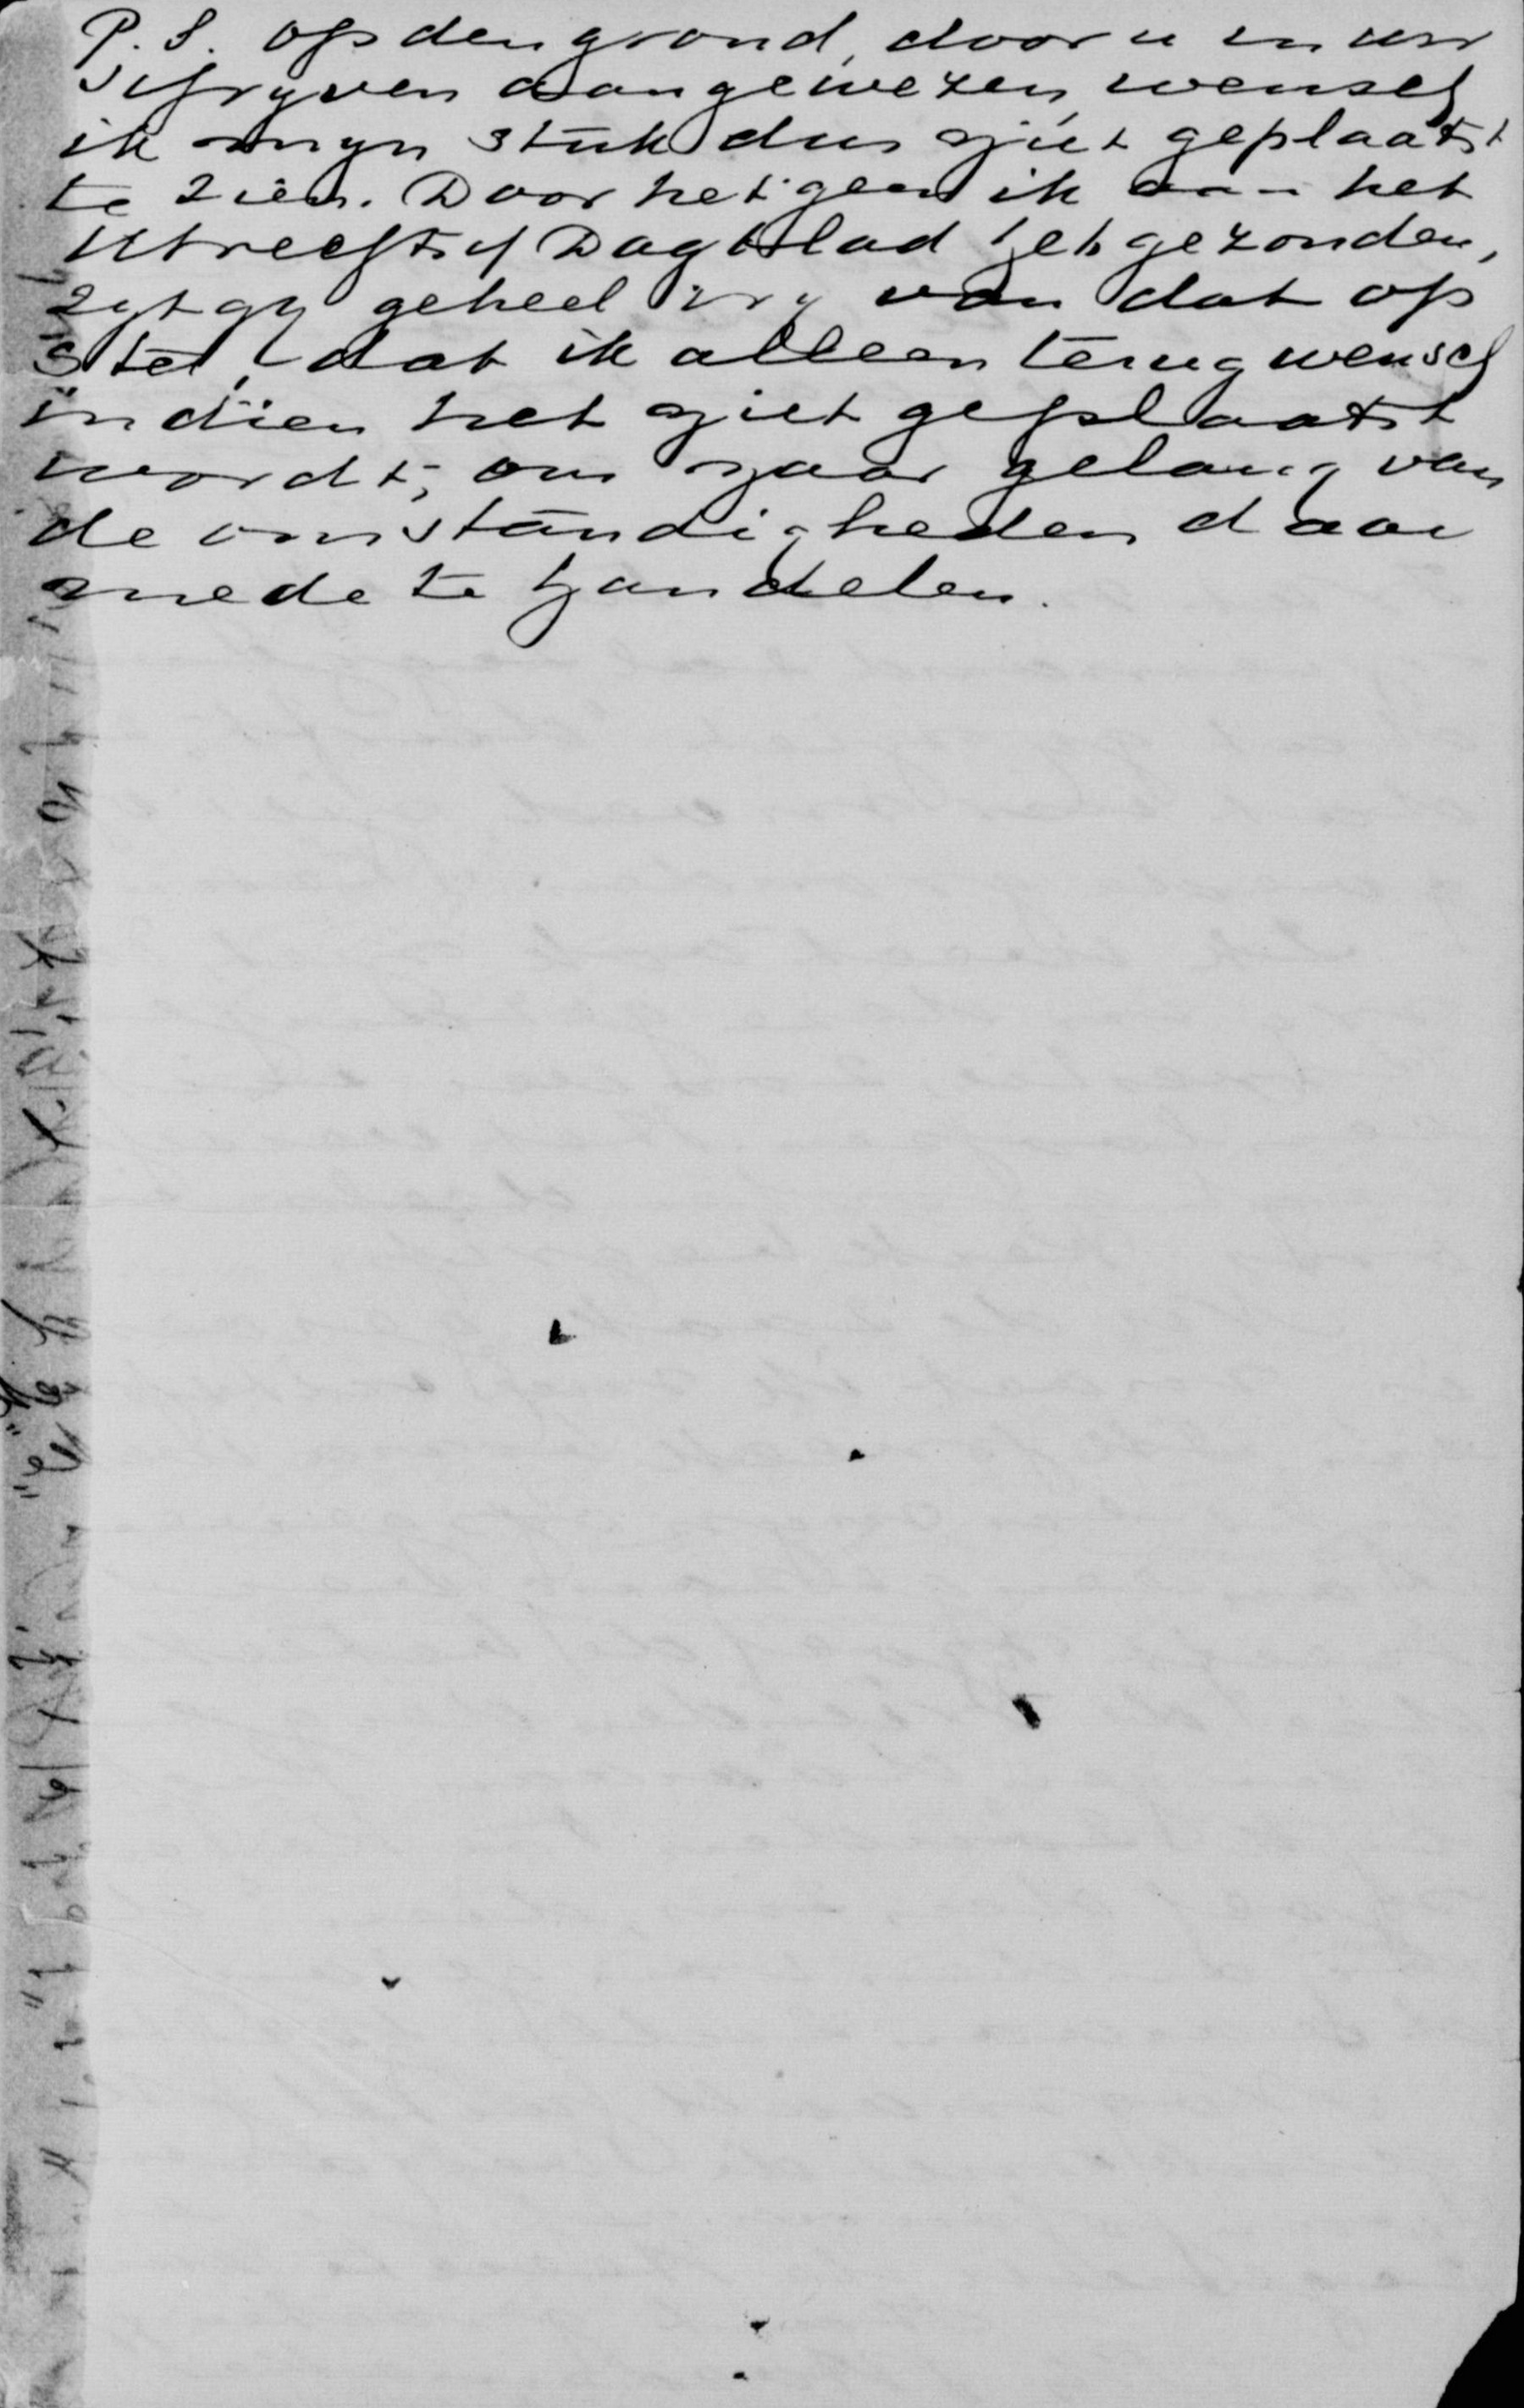 P.S. op den grond, door u in uw
schryven aangewezen, wensch
ik myn stuk dus niet geplaatst
te zien. Door hetgeen ik aan het
Utrechtsch Dagblad heb gezonden,
zyt gy geheel vry van dat op
stel, dat ik alleen terug wensch
indien het niet geplaatst
wordt, om naar gelang van
de omstandigheden daar
mede te handelen.